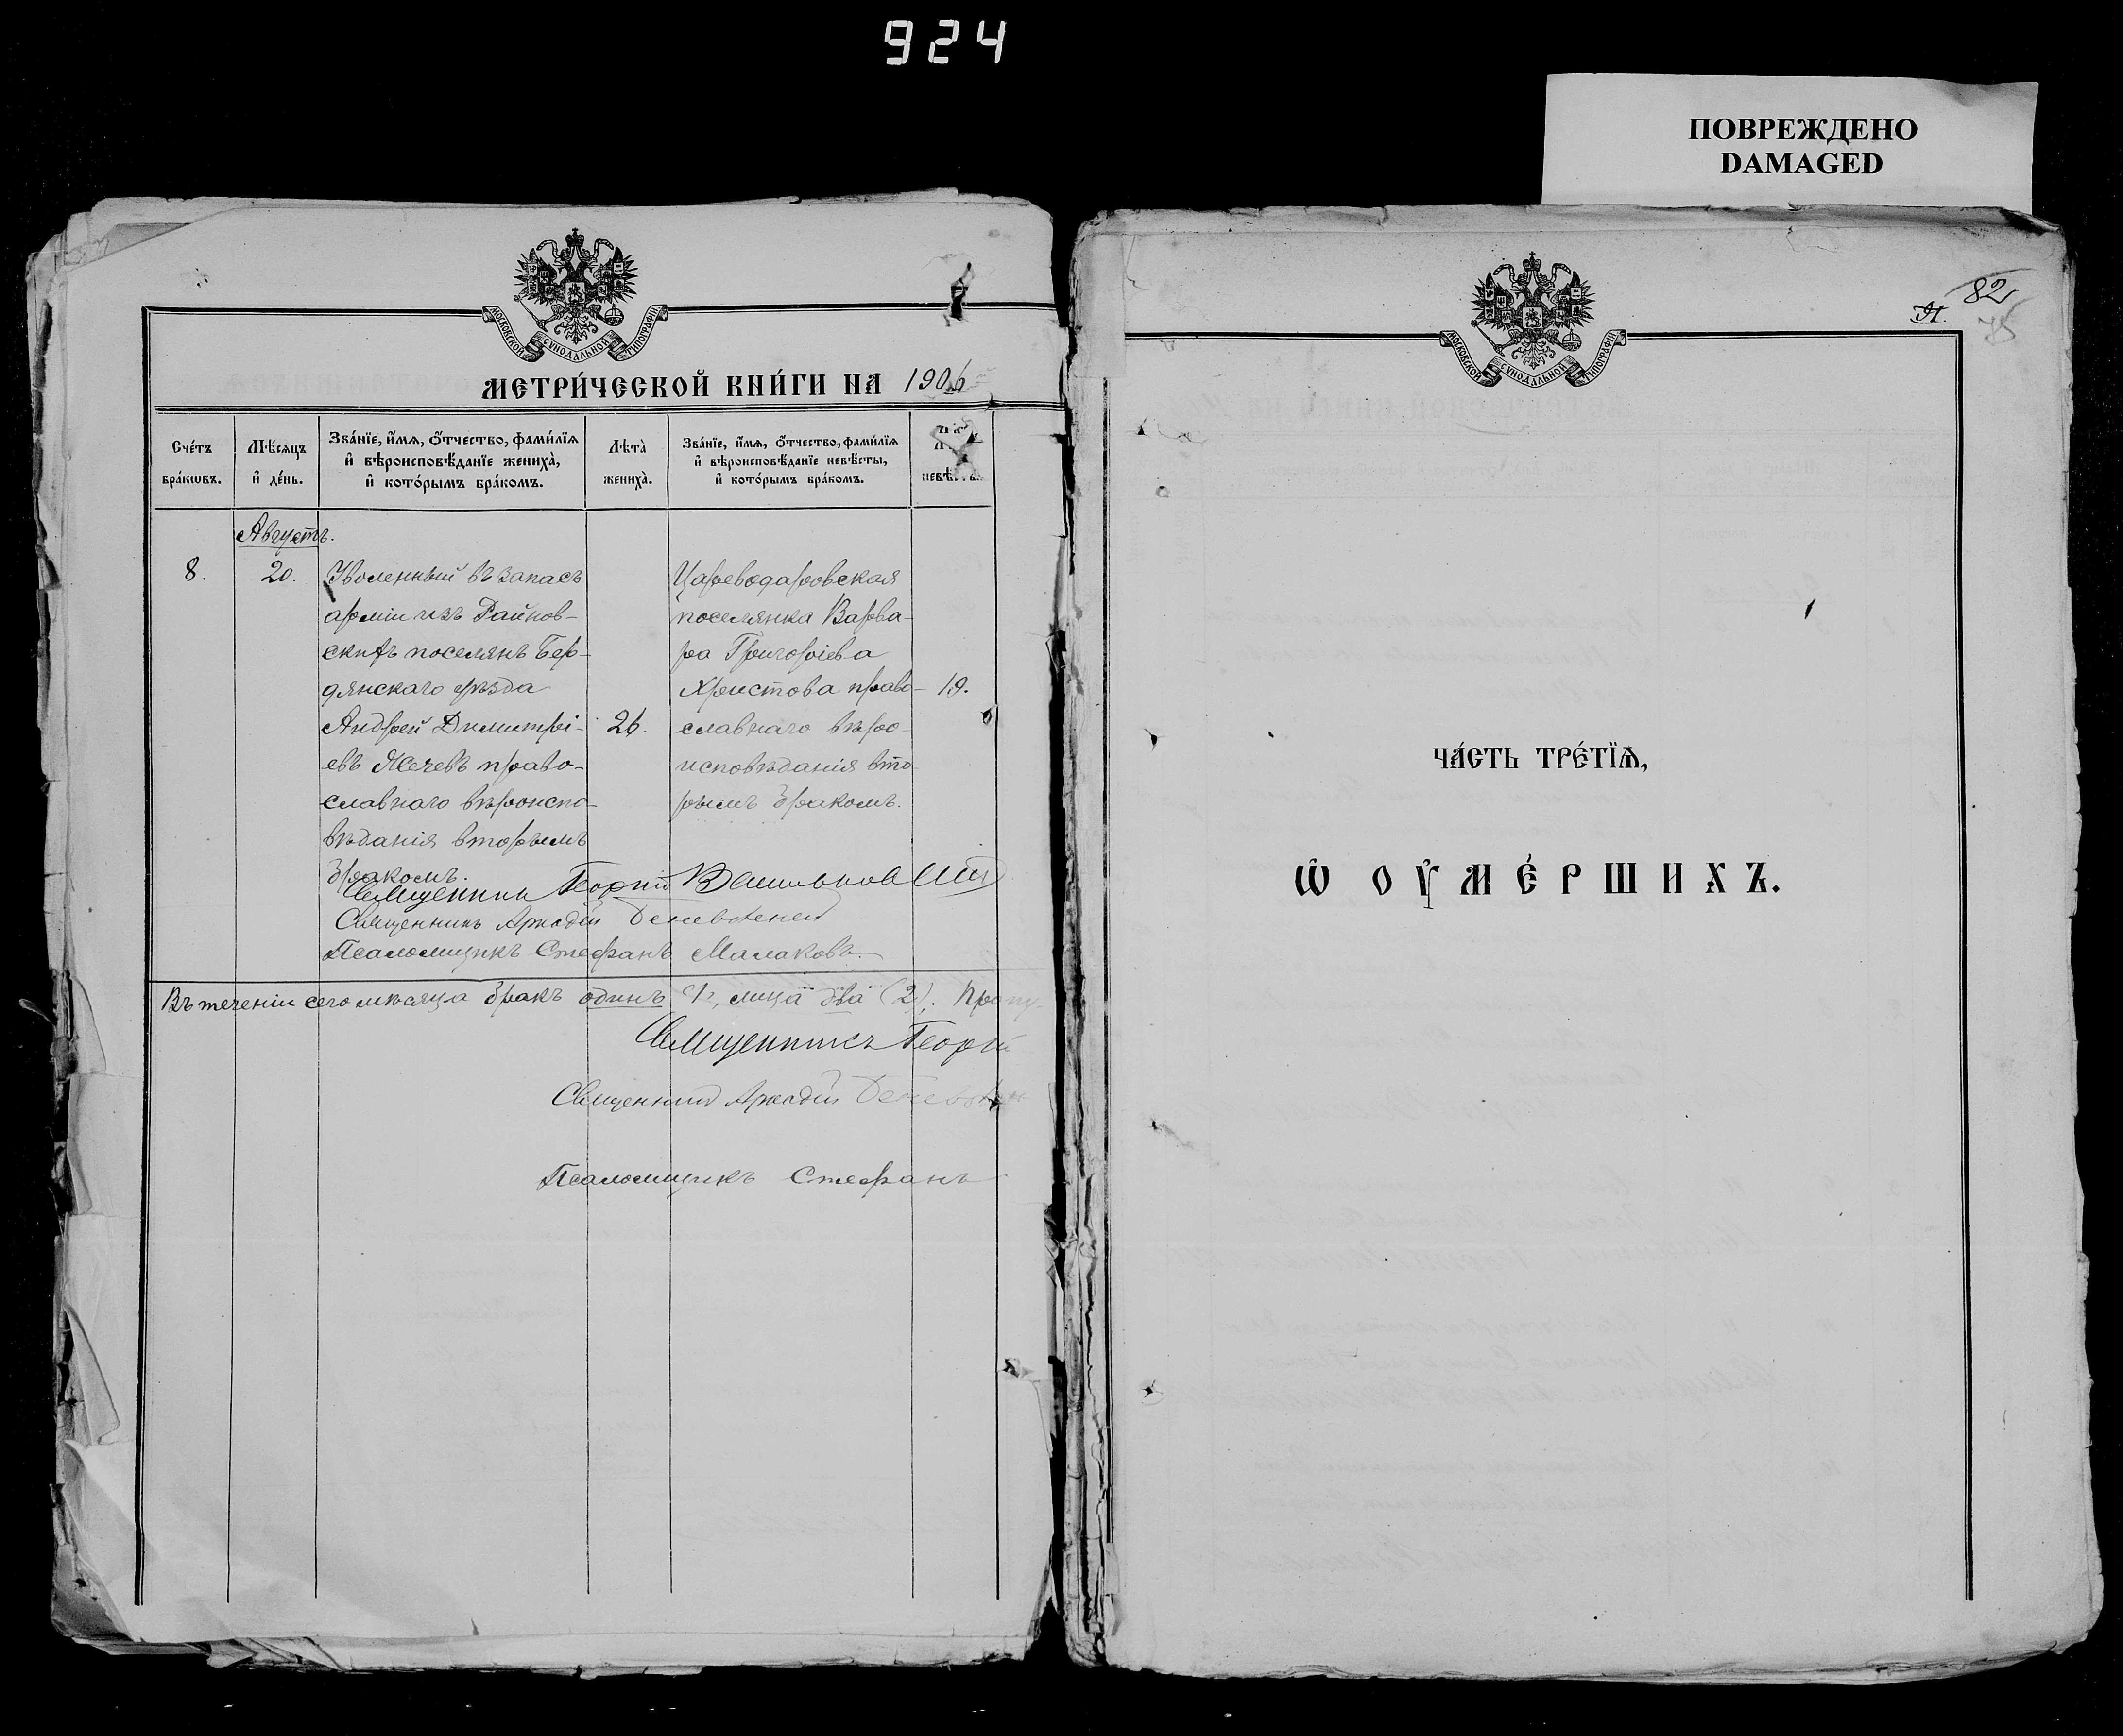 924
ПОВРЕЖДЕНО
DAMAGED
МОСКОВСКОЙ СѴНОДАЛЬНОЙ ТИПОГРАФІИ
МЕТРИ́ЧЕСКОЙ КНИ́ГИ НА 1906
Сче́тъ бра́кѡвъ.
Мѣ́сяцъ и҆ де́нь.
Зва́нїе, и҆́мѧ, ѻ҆́тчество, фами́лїѧ и҆ вѣроисповѣ́данїе жениха̀, и҆ кото́рымъ бра́комъ.
Лѣта̀ жениха̀.
Зва́нїе, и҆́мѧ, ѻ҆́тчество, фами́лїѧ и҆ вѣроисповѣ́данїе невѣ́сты, и҆ кото́рымъ бра́комъ.
Августъ.
8.
20.
Уволенный въ запасъ
арміи изъ Райнов-
скихъ поселянъ Бер-
дянскаго уѣзда
Андрей Димитрі-
евъ Жечевъ право-
славнаго вѣроиспо-
вѣданія вторымъ
бракомъ.
26.
Цареводаровская
поселянка Варва-
ра Григоріева
Христова право-
славнаго вѣро-
исповѣданія вто-
рымъ бракомъ.
19.
Священникъ Георгій
Священникъ Аркадій
Псаломщикъ Стефанъ Малаковъ.
Въ теченіи сего мѣсяца бракъ одинъ 1, лица два (2).
Священникъ Георгій
Священникъ Аркадій
Псаломщикъ Стефанъ
82
91.
МОСКОВСКОЙ СѴНОДАЛЬНОЙ ТИПОГРАФІИ
ЧА́СТЬ ТРЕ́ТЇѦ,
Ѡ҆ ОУ҆МЕ́РШИХЪ.